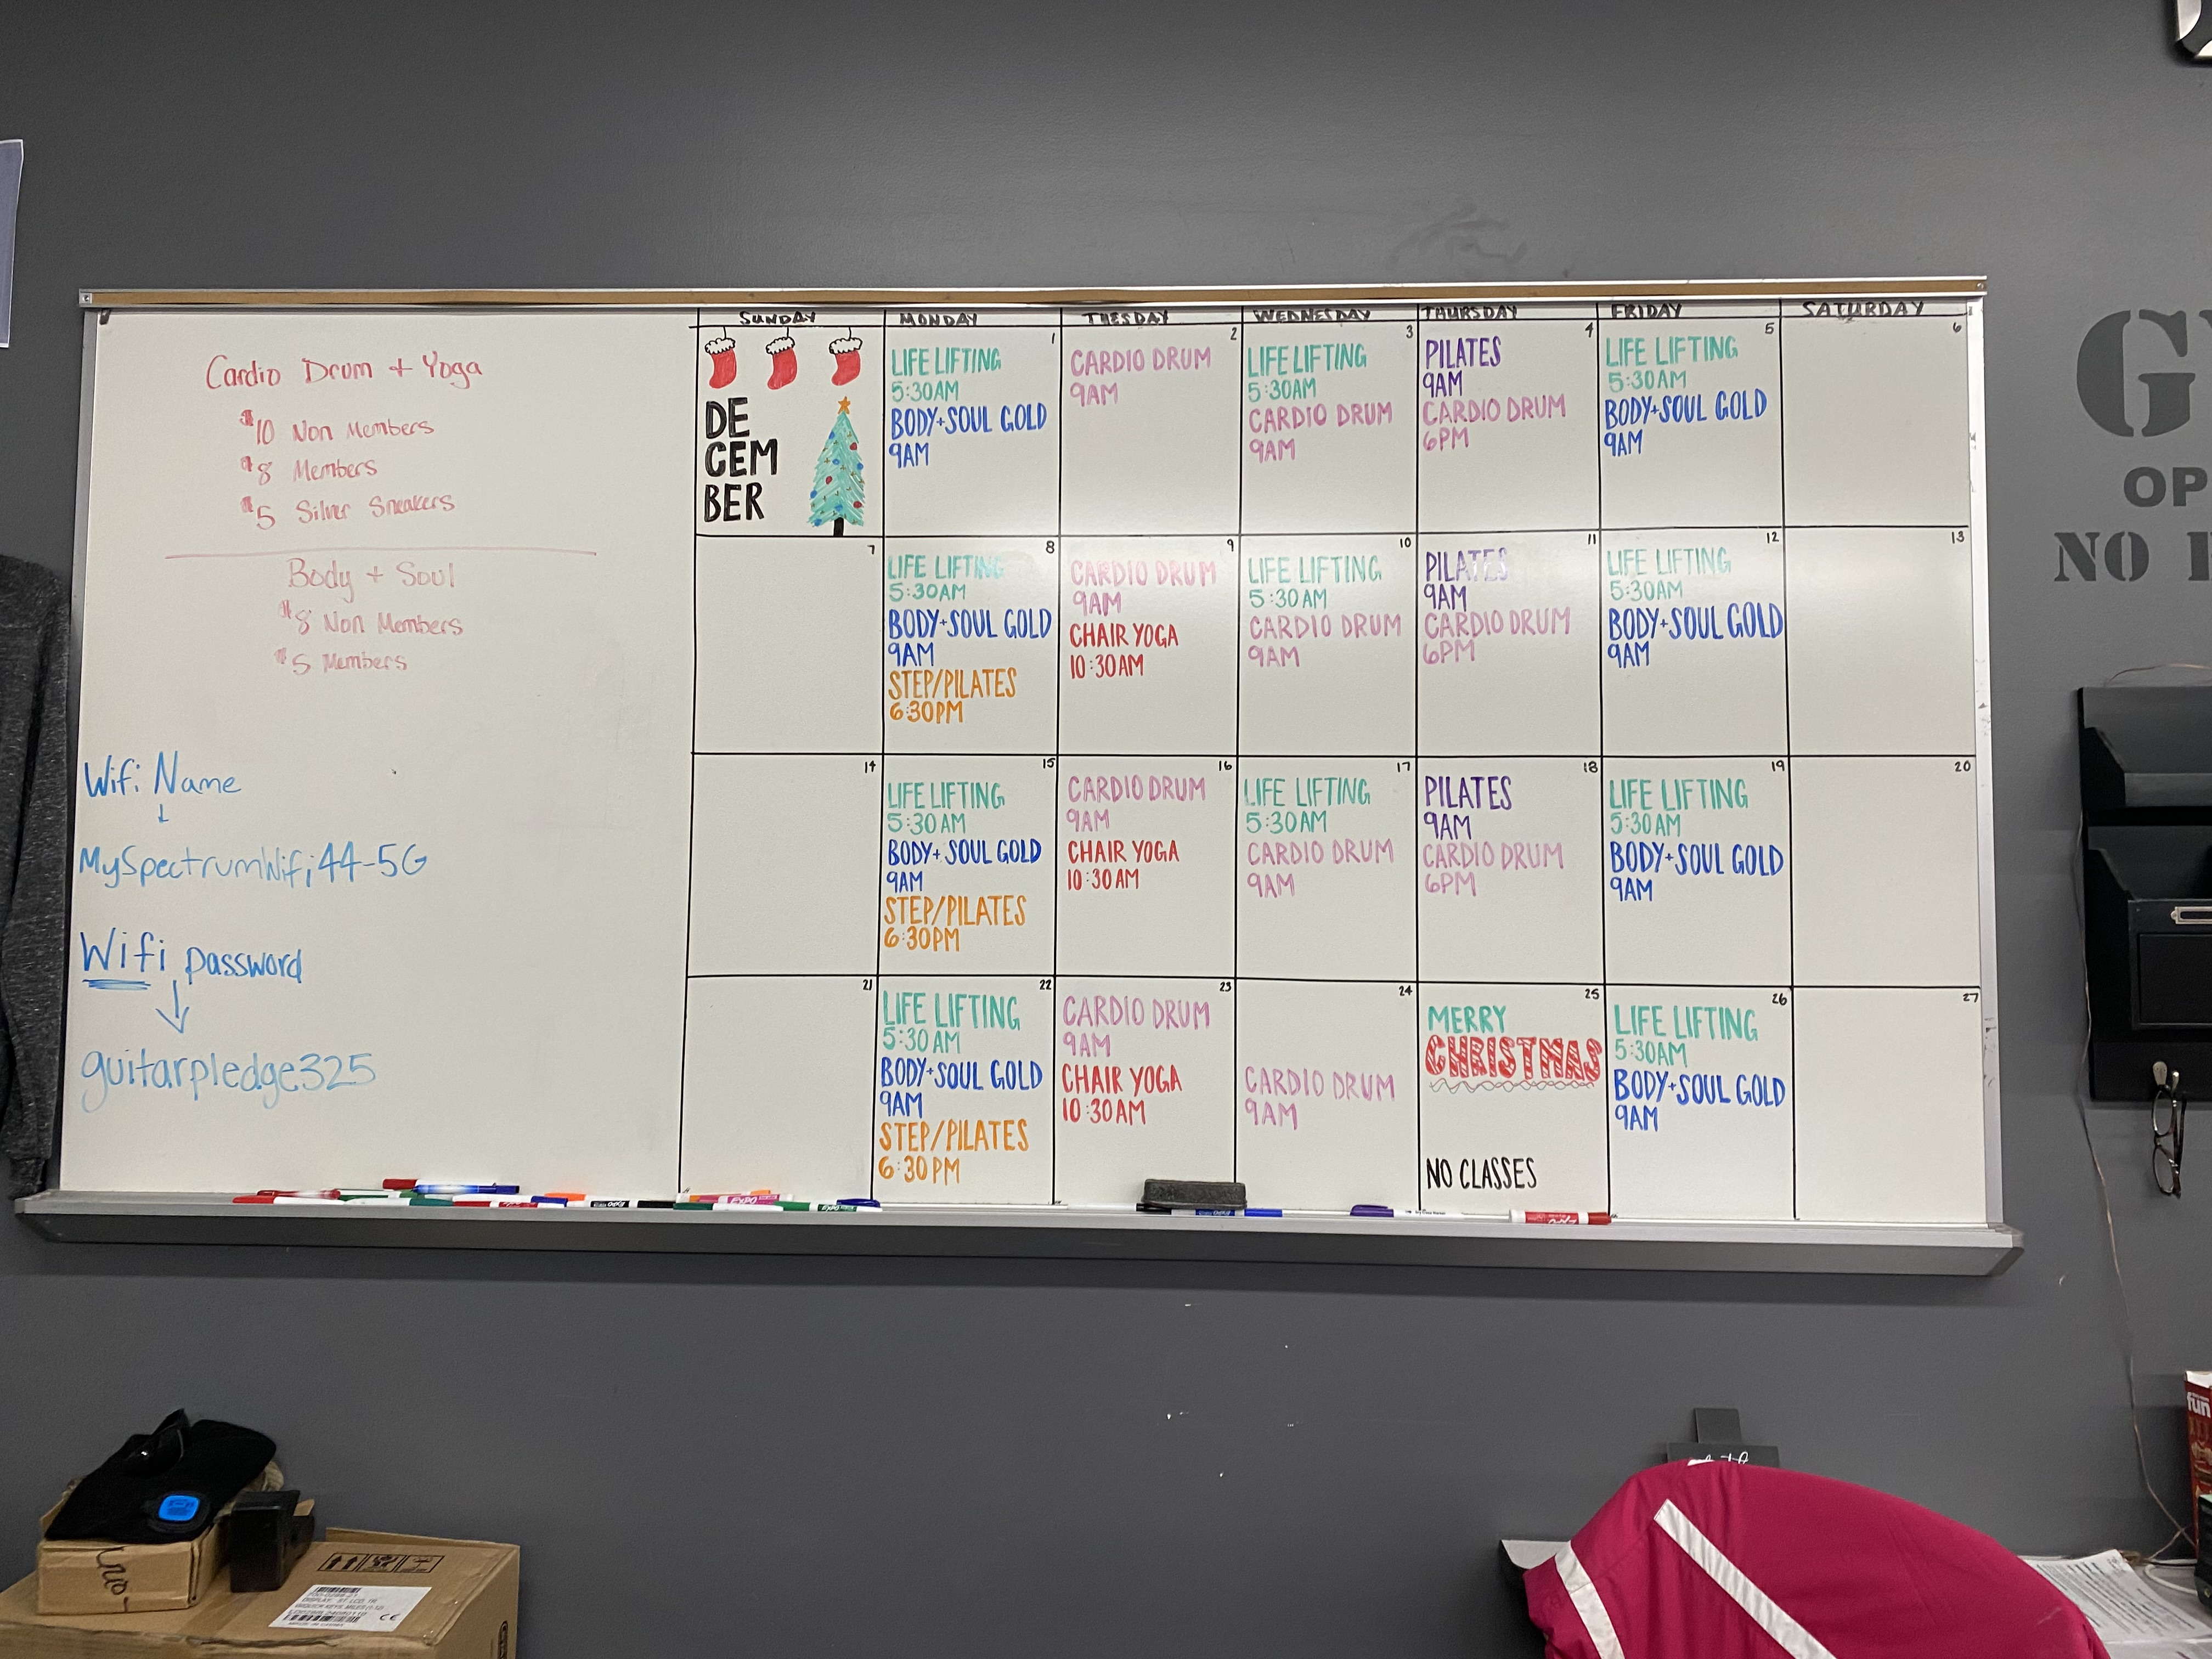 Cardio Drum + Yoga
$10 Non Members
$8 Members
$5 Silver Sneakers
Body + Soul
$8 Non Members
$5 Members
Wifi Name
MySpectrumWifi44-5G
Wifi password
guitarpledge325
SUNDAY MONDAY TUESDAY WEDNESDAY THURSDAY FRIDAY SATURDAY
DE
CEM
BER
1
LIFE LIFTING
5:30AM
BODY+SOUL GOLD
9AM
2
CARDIO DRUM
9AM
3
LIFE LIFTING
5:30AM
CARDIO DRUM
9AM
4
PILATES
9AM
CARDIO DRUM
6PM
5
LIFE LIFTING
5:30AM
BODY+SOUL GOLD
9AM
6
7
8
LIFE LIFTING
5:30AM
BODY+SOUL GOLD
9AM
STEP/PILATES
6:30PM
9
CARDIO DRUM
9AM
CHAIR YOGA
10:30AM
10
LIFE LIFTING
5:30AM
CARDIO DRUM
9AM
11
PILATES
9AM
CARDIO DRUM
6PM
12
LIFE LIFTING
5:30AM
BODY+SOUL GOLD
9AM
13
14
15
LIFE LIFTING
5:30AM
BODY+SOUL GOLD
9AM
STEP/PILATES
6:30PM
16
CARDIO DRUM
9AM
CHAIR YOGA
10:30AM
17
LIFE LIFTING
5:30AM
CARDIO DRUM
9AM
18
PILATES
9AM
CARDIO DRUM
6PM
19
LIFE LIFTING
5:30AM
BODY+SOUL GOLD
9AM
20
21
22
LIFE LIFTING
5:30AM
BODY+SOUL GOLD
9AM
STEP/PILATES
6:30PM
23
CARDIO DRUM
9AM
CHAIR YOGA
10:30AM
24
CARDIO DRUM
9AM
25
MERRY
CHRISTMAS
NO CLASSES
26
LIFE LIFTING
5:30AM
BODY+SOUL GOLD
9AM
27
OP
NO
EXPO
fun